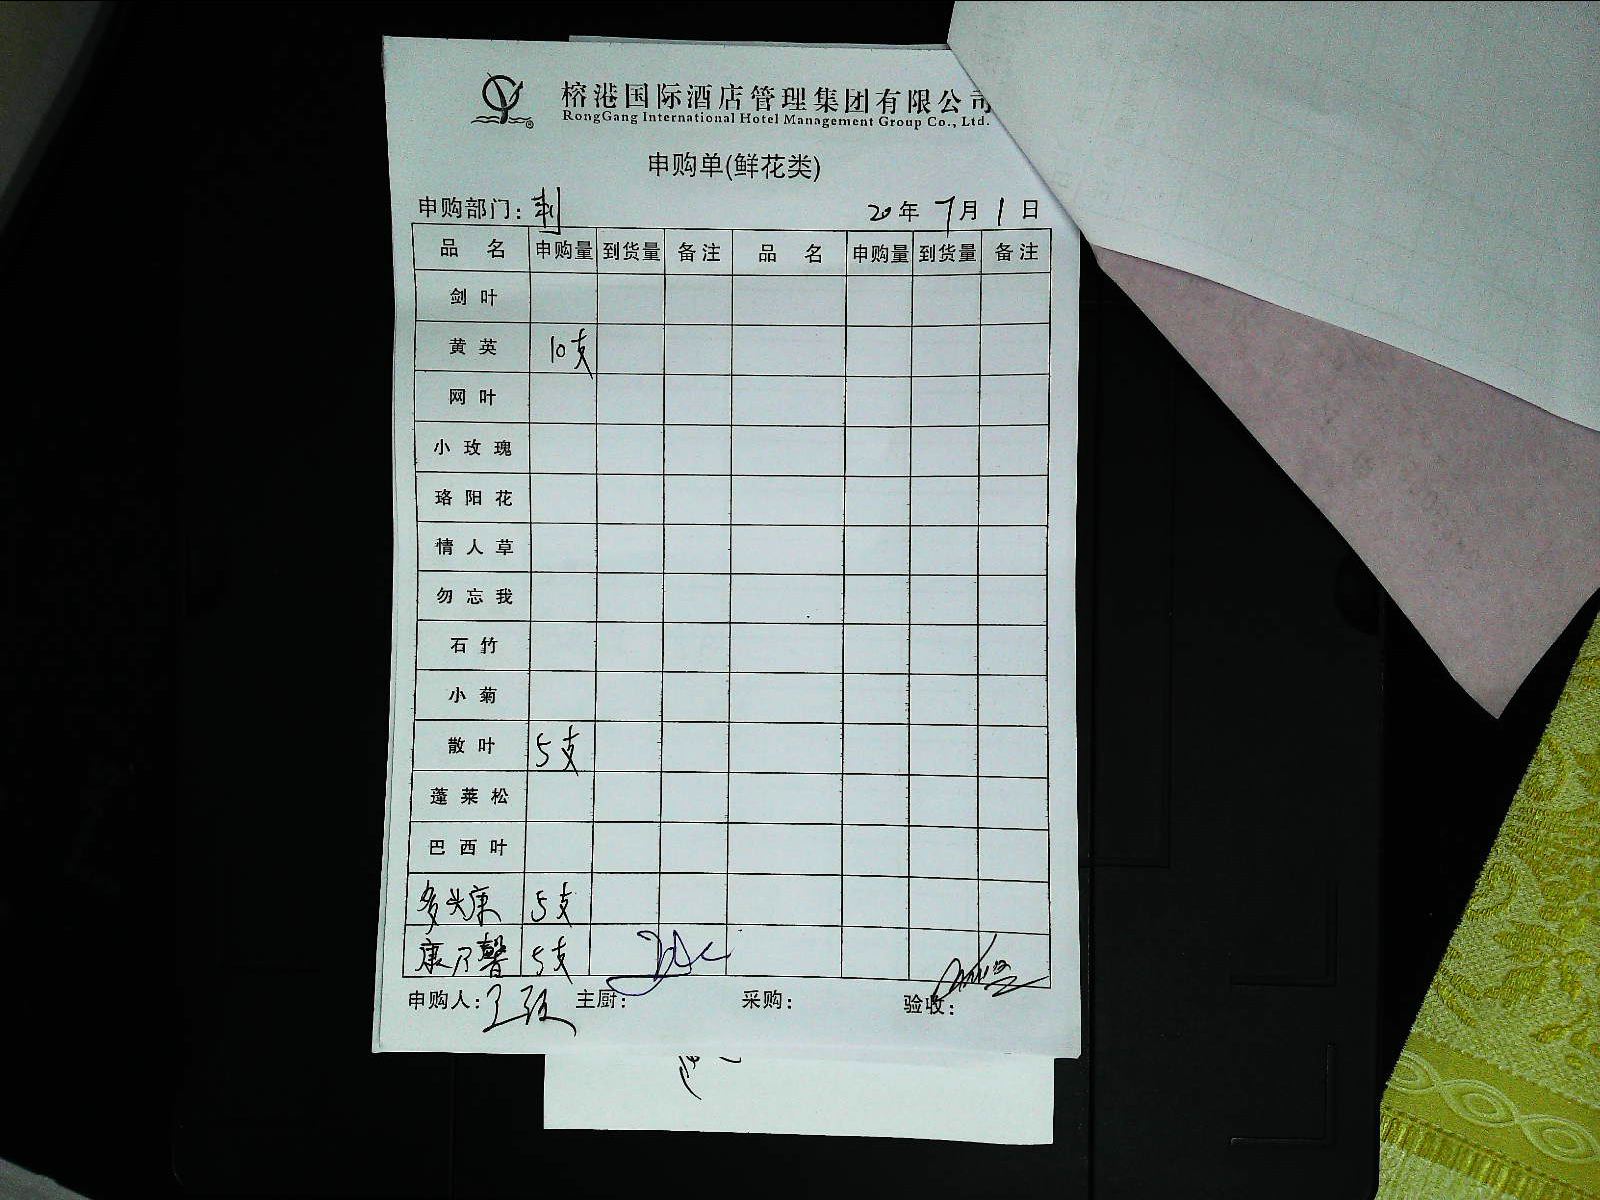 榕港国际酒店管理集团有限公司
RongGang International Hotel Management Group Co., Ltd.
申购单(鲜花类)
申购部门: 20年 7月 1日
品 名 申购量 到货量 备注 品 名 申购量 到货量 备注
剑 叶
黄 英 10支
网 叶
小 玫 瑰
珞 阳 花
情 人 草
勿 忘 我
石 竹
小 菊
散 叶 5支
蓬 莱 松
巴 西 叶
多头康 5支
康乃馨 5支
申购人: 主厨: 采购: 验收: